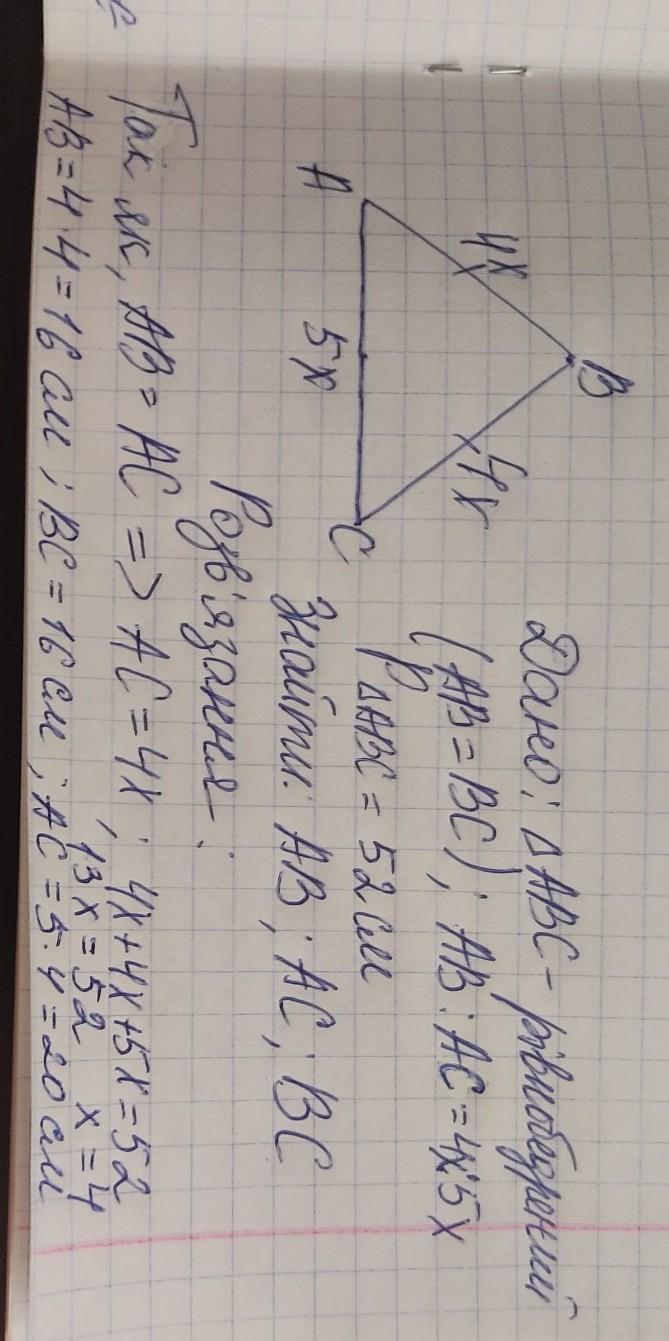 Дано: △ABC - рівнобедрений
(AB = BC); AB : AC = 4x:5x
P △ABC = 52 см
Знайти: AB; AC; BC
B
4x
4x
A
C
5x
Розв'язання:
Так як, AB = AC => AC = 4x; 4x + 4x + 5x = 52
13x = 52 x = 4
AB = 4·4 = 16 см; BC = 16 см; AC = 5·4 = 20 см